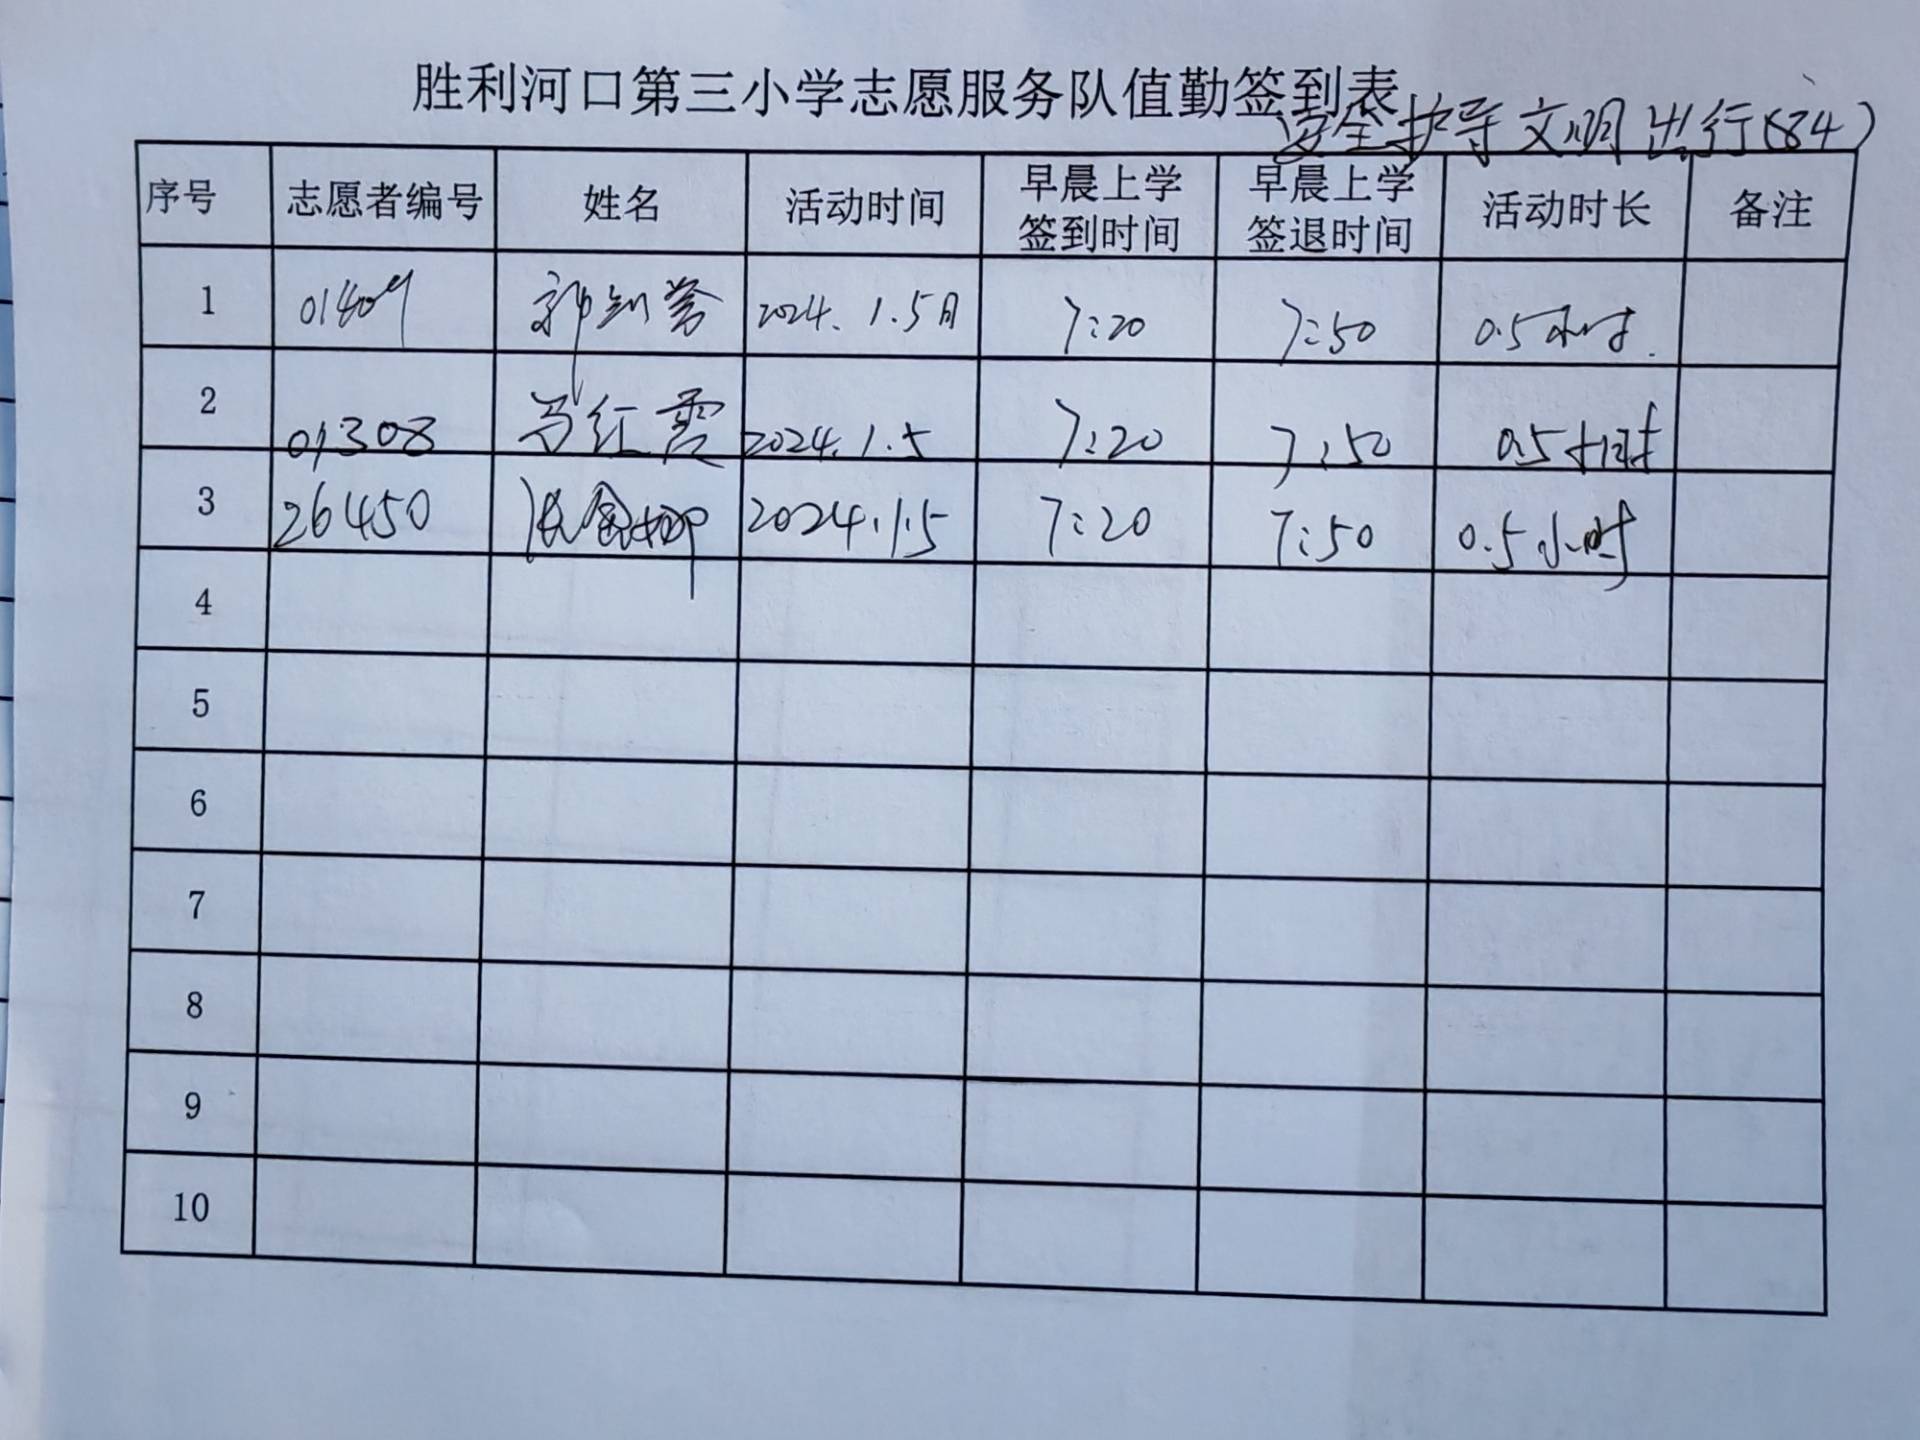 胜利河口第三小学志愿服务队值勤签到表
安全护导文明出行(84)
序号 志愿者编号 姓名 活动时间 早晨上学签到时间 早晨上学签退时间 活动时长 备注
1 01409 郭 2024.1.5日 7:20 7:50 0.5小时.
2 01308 马红霞 2024.1.5 7:20 7:50 0.5小时
3 26450 2024.1.5 7:20 7:50 0.5小时
4
5
6
7
8
9
10